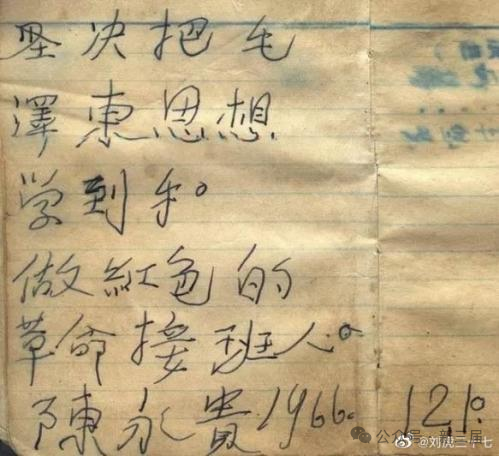 坚决把毛
澤東思想
学到手。
做紅色的
革命接班人。
陳永貴1966. 12.1.
公众号 新三届
@刘虎三十七